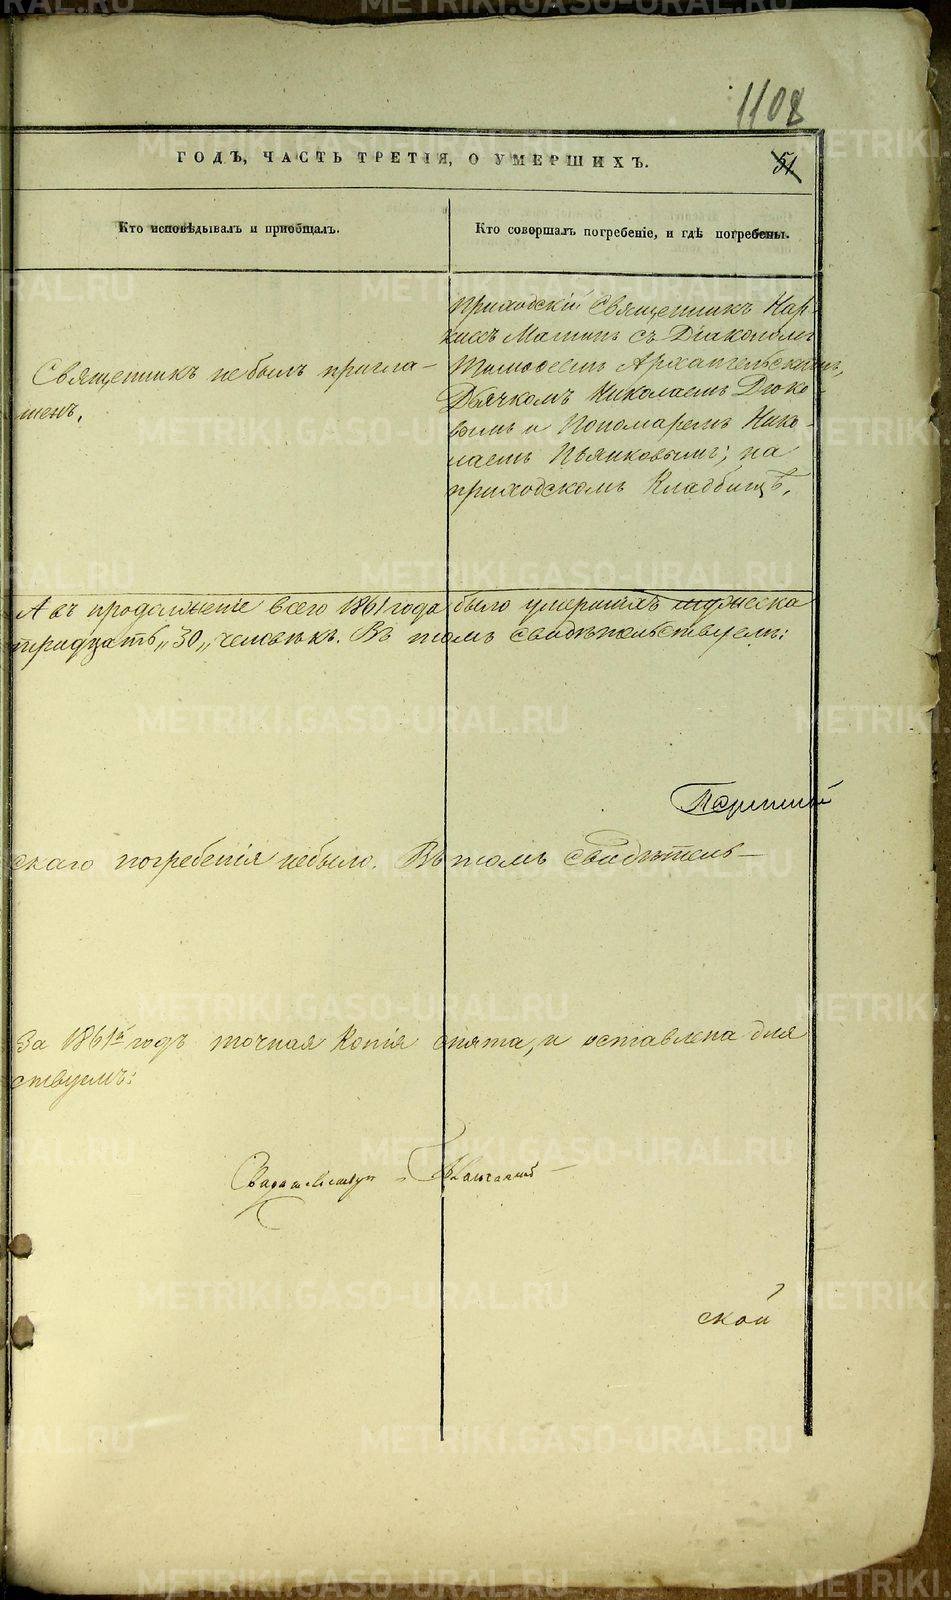 1108
ГОДЪ, ЧАСТЬ ТРЕТІЯ, О УМЕРШИХЪ.
51
Кто исповѣдывалъ и приобщалъ.
Кто совершалъ погребеніе, и гдѣ погребены.
Священникъ небылъ пригла-
шенъ.
Приходскій Священникъ Нар-
кисъ Маминъ съ Діакономъ
Архангельскимъ,
Дьячкомъ Николаемъ Дюко-
вымъ и Пономаремъ Нико-
лаемъ Пьянковымъ; на
приходскомъ Кладбищѣ.
А въ продолженіе всего 1861 года было умершихъ мужеска
тридцать „30„ человѣкъ. Въ томъ свидѣтельствуемъ:
скаго погребенія небыло. Въ томъ свидѣтель-
За 1861й годъ точная Копія снята, и оставлена для
ствуемъ:
ской
METRIKI.GASO-URAL.RU